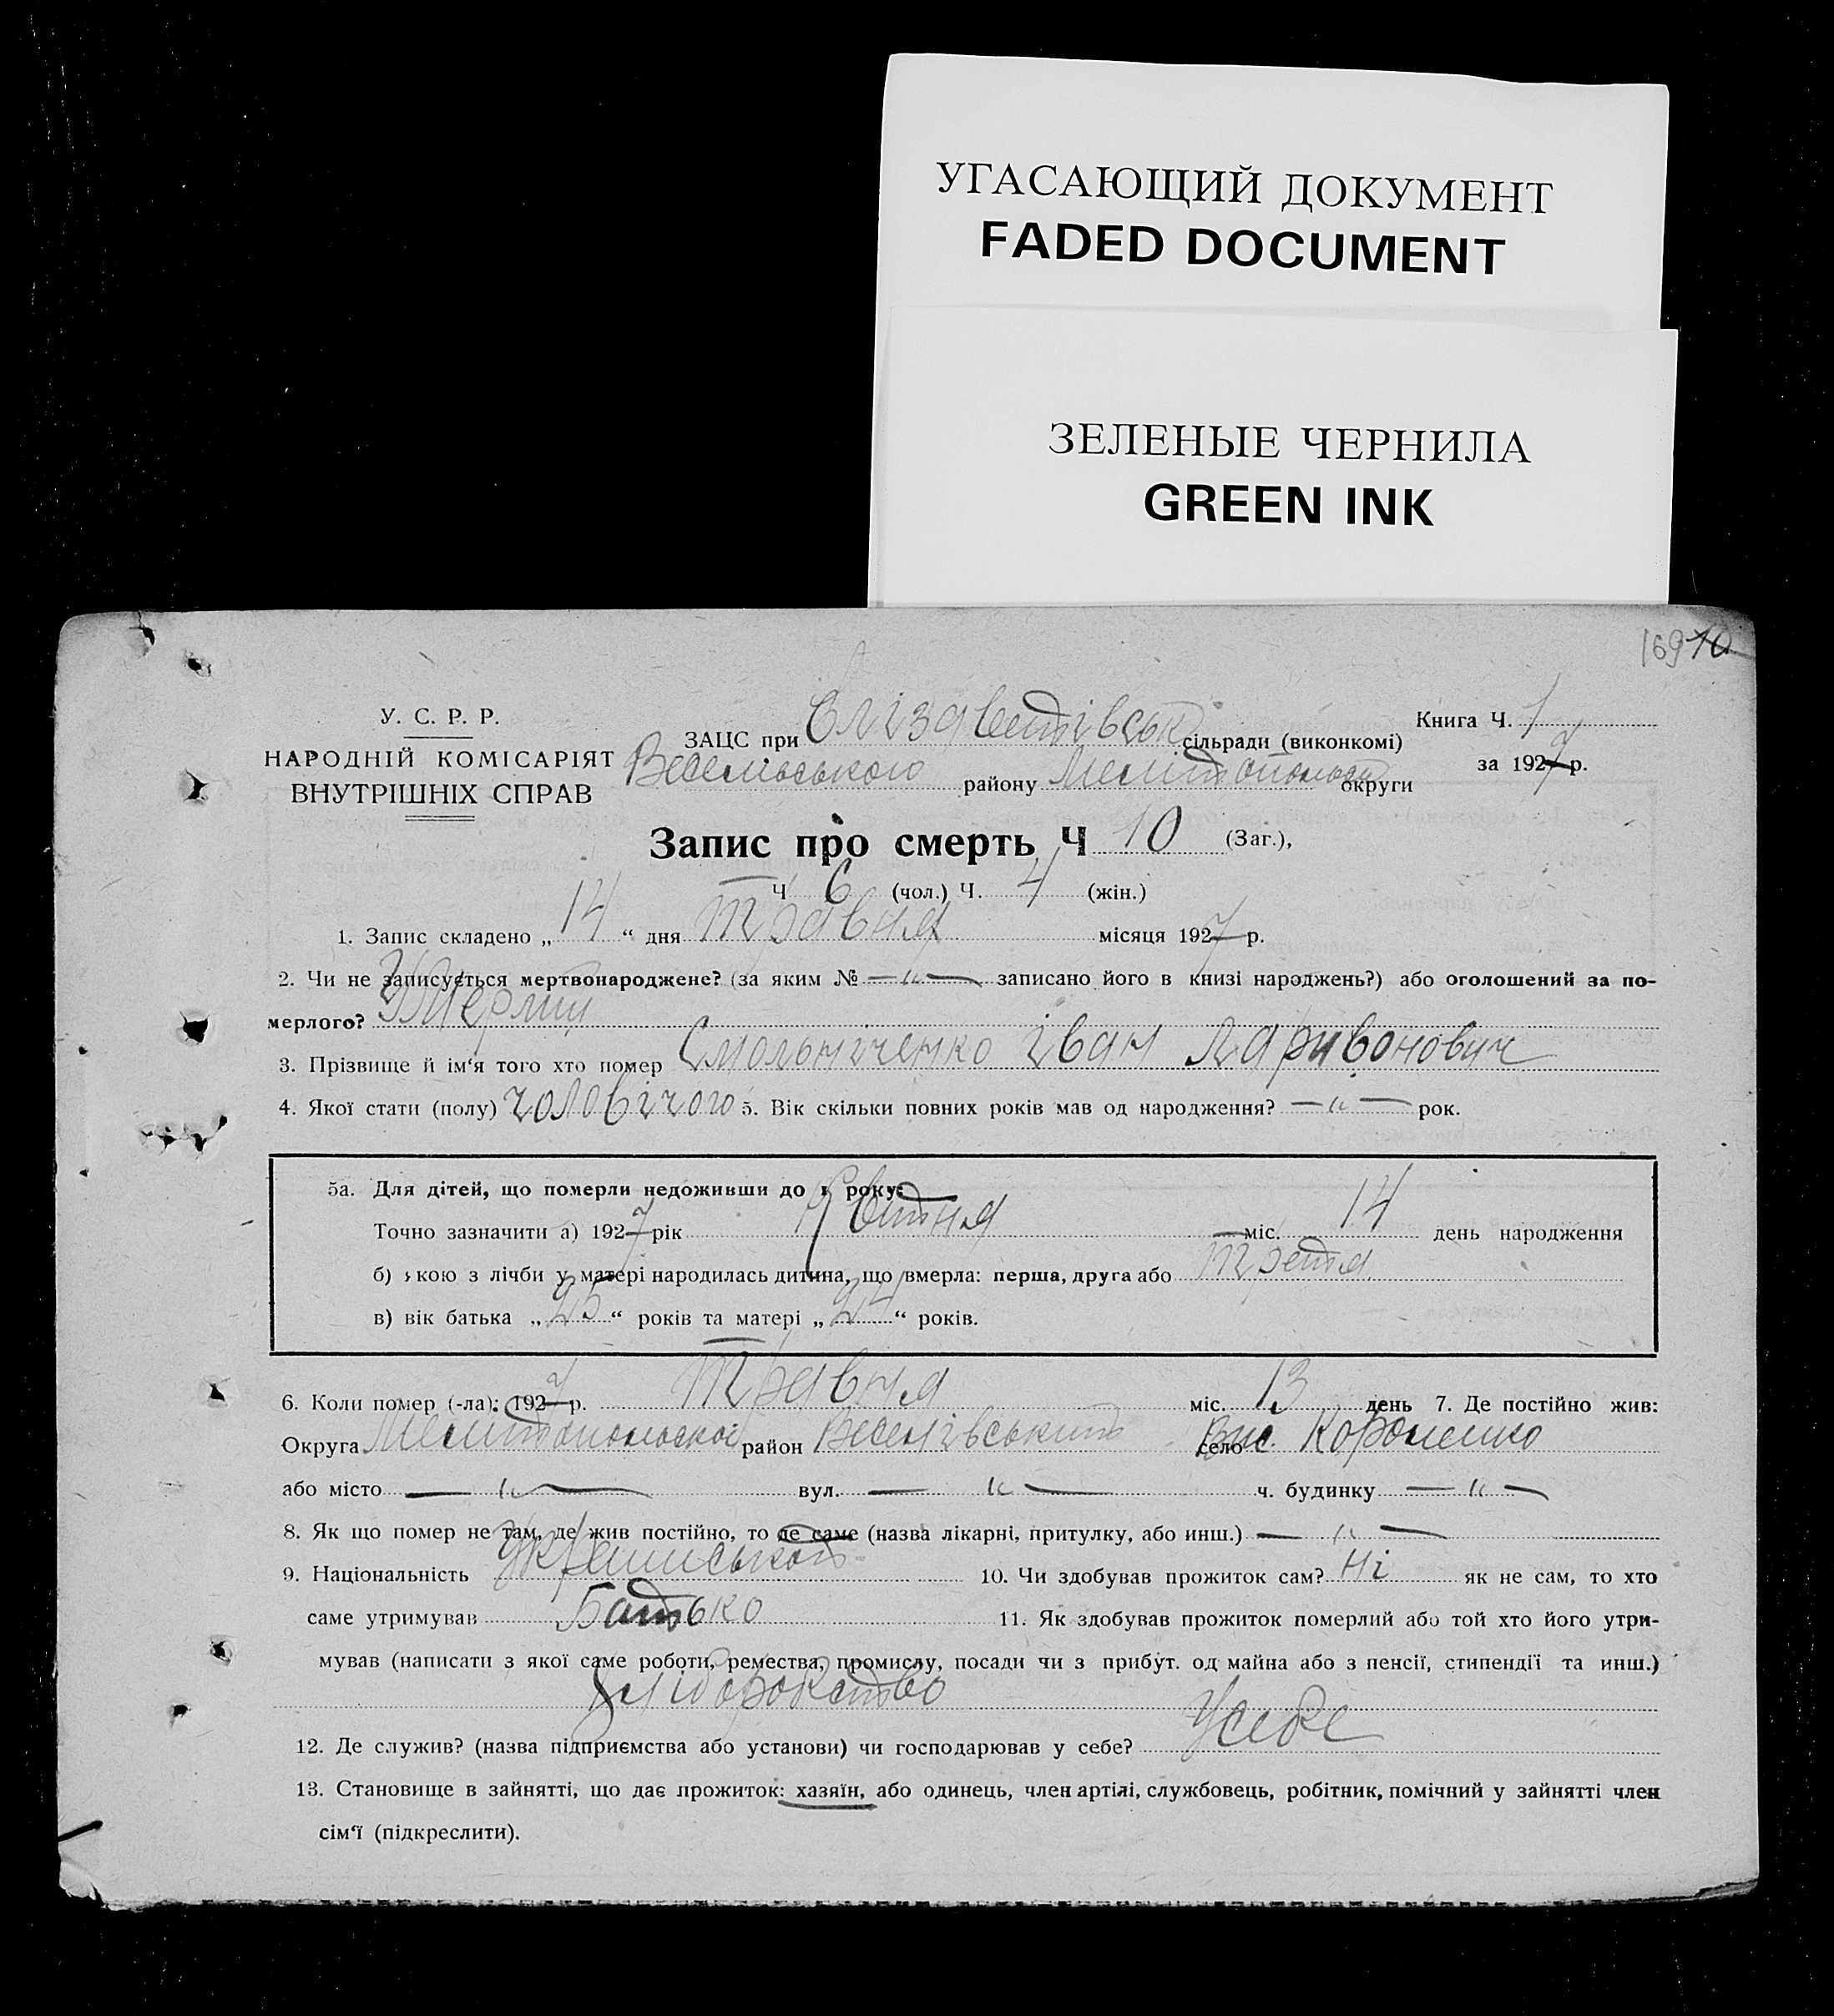 УГАСАЮЩИЙ ДОКУМЕНТ
FADED DOCUMENT
ЗЕЛЕНЫЕ ЧЕРНИЛА
GREEN INK
169 10
У. С. Р. Р.
НАРОДНІЙ КОМІСАРІЯТ
ВНУТРІШНІХ СПРАВ
Книга Ч. 1
за 1927 р.
ЗАЦС при Єлізаветівськ сільради (виконкомі)
району Мелітопольськ округи
Запис про смерть Ч 10 (Заг.),
Ч 6 (чол.) Ч. 4 (жін.)
1. Запис складено „ 14 “ дня Травня місяця 1927 р.
2. Чи не записується мертвонароджене? (за яким № — „ — записано його в книзі народжень?) або оголошений за по-
мерлого? Умерлий
3. Прізвище й ім'я того хто помер Смольніченко Іван Ларивонович
4. Якої стати (полу) чоловічого 5. Вік скільки повних років мав од народження? — „ — рок.
5а. Для дітей, що померли недоживши до 1 року:
Точно зазначити а) 1927 рік Квітня міс. 14 день народження
б) якою з лічби у матері народилась дитина, що вмерла: перша, друга або Третя
в) вік батька „ 25 “ років та матері „ 24 “ років.
6. Коли помер (-ла): 1927 р. Травня міс. 13 день 7. Де постійно жив:
Округа Мелітопольской район Веселівський село Вис.
або місто — „ — вул. — „ — ч. будинку — „ —
8. Як що помер не там, де жив постійно, то де саме (назва лікарні, притулку, або инш.) — „ —
9. Національність 10. Чи здобував прожиток сам? Ні як не сам, то хто
саме утримував Батько 11. Як здобував прожиток померлий або той хто його утри-
мував (написати з якої саме роботи, ремества, промислу, посади чи з прибут. од майна або з пенсії, стипендії та инш.)
Хліборобство
12. Де служив? (назва підприємства або установи) чи господарював у себе? У себе
13. Становище в зайнятті, що дає прожиток: хазяїн, або одинець, член артілі, службовець, робітник, помічний у зайнятті член
сім'ї (підкреслити).